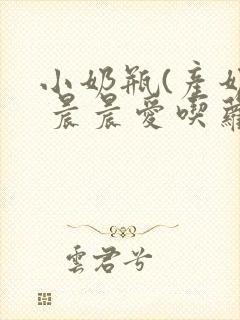 小奶瓶(產奶
晨晨愛喫蘿
雲君兮